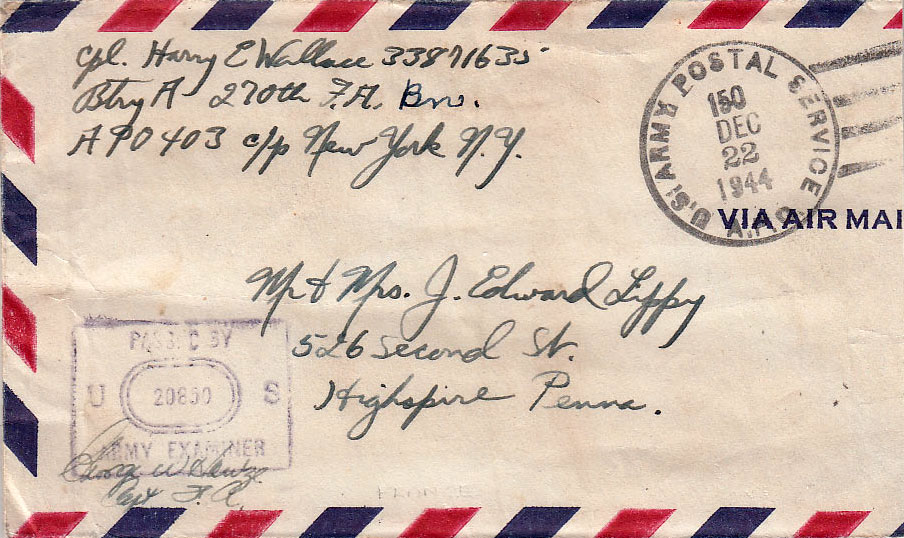 Cpl. Harry E Wallace 33871635
Btry A 270th F.A. Bn.
APO 403 c/p New York N.Y.
U.S. ARMY POSTAL SERVICE
150
DEC
22
1944
A.P.O.
VIA AIR MAI
Mr & Mrs. J. Edward Lippy
526 Second St.
Highspire Penna.
PASSED BY
U 20800 S
ARMY EXAMINER
George W
Capt F. A.